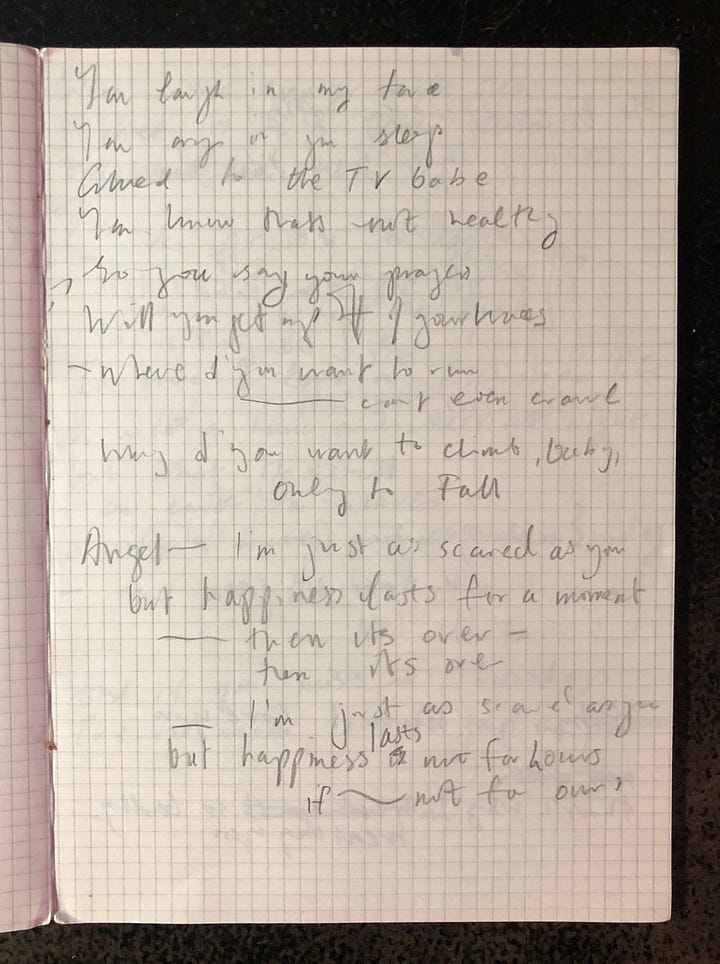 You laugh in my face
You cry in your sleep
Glued to the TV babe
You know thats not healthy
So you say your prayers
Will you get up off of your knees
- Where d'you want to run
cant even crawl
Why d'you want to climb, baby,
only to Fall
Angel — I'm just as scared as you
but happiness lasts for a moment
— then its over -
then its over
— I'm just as scared as you
but happiness lasts not for hours
if — not for ours